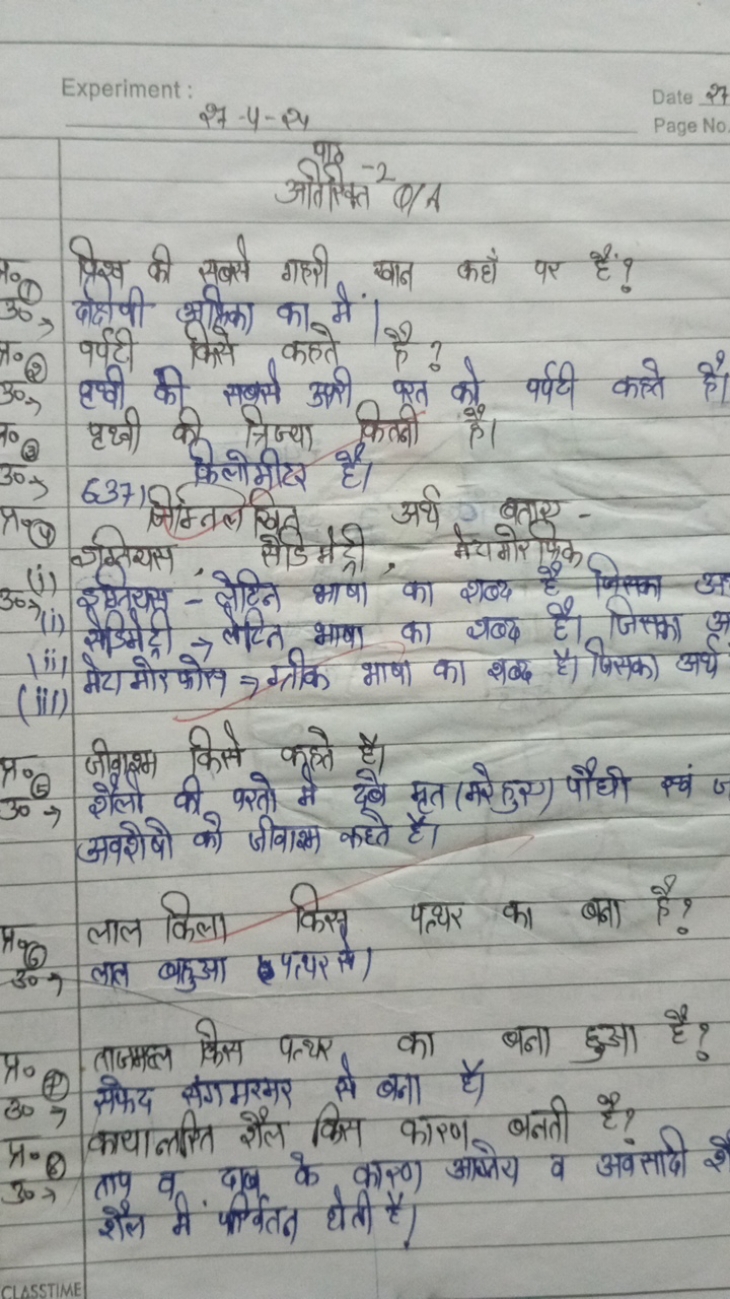 Experiment :
Date 27
२७-५-२५
Page No.
पाठ -2
अतिरिक्त Q/A
प्र० ① विश्व की सबसे गहरी खान कहाँ पर हैं?
उ० → दक्षिणी अफ्रिका का में।
प्र० ② पर्पटी किसे कहते है?
उ० → पृथ्वी की सबसे ऊपरी परत को पर्पटी कहते है।
प्र० ③ पृथ्वी की त्रिज्या कितनी है।
उ० → 6371 किलोमीटर है।
प्र० ④ निम्नलिखित अर्थ बताए -
इग्नियस, सेडिमेंट्री, मेटामोरफिक
उ० → (i) इग्नियस - लैटिन भाषा का शब्द है जिसका
(ii) सेडिमेट्री → लैटिन भाषा का शब्द है। जिसका
(iii) मेटामोरफोस → ग्रीक भाषा का शब्द है। जिसका अर्थ
प्र० ⑤ जीवाश्म किसे कहते है।
उ० → शैलो की परतो में दबे मृत (मरे हुए) पौधो एवं
अवशेषो को जीवाश्म कहते है।
प्र० ⑥ लाल किला किस पत्थर का बना है?
उ० → लाल बलुआ पत्थर से।
प्र० ⑦ ताजमहल किस पत्थर का बना हुआ है?
उ० → सफेद संगमरमर से बना है।
प्र० ⑧ कायान्तरित शैल किस कारण बनती है?
उ० → ताप व दाब के कारण आग्नेय व अवसादी
शैल में परिर्वतन होती है।
CLASSTIME